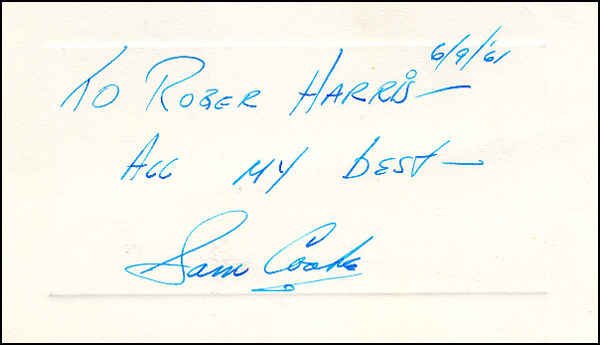 6/9/'61
To Roger Harris—
All my best—
Sam Cooke